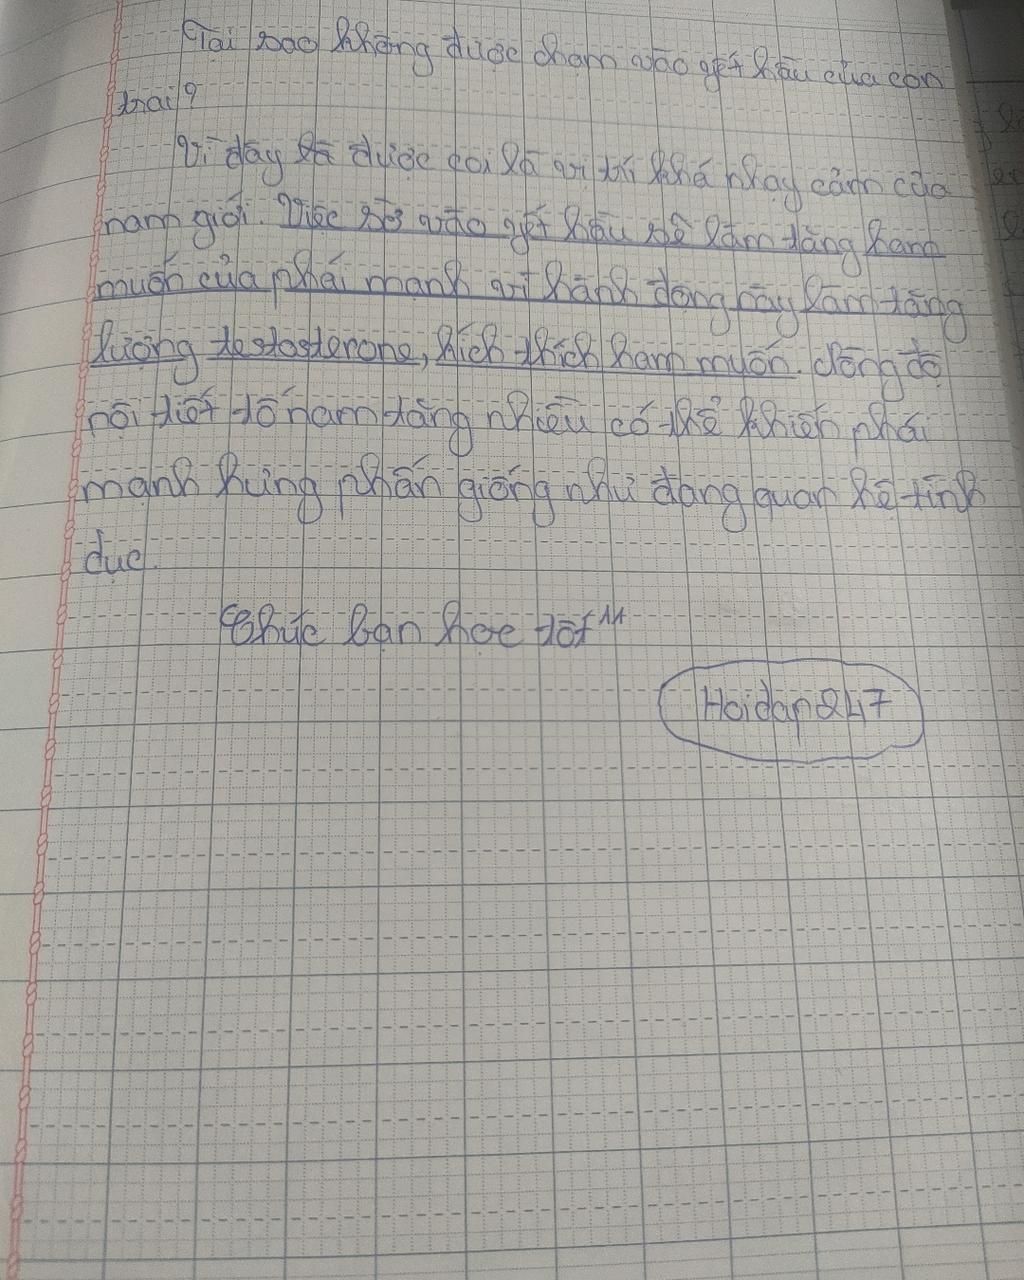 Tại sao không được chạm vào yết hầu của con
trai?
Vì đây là được coi là vị trí khá nhạy cảm của
nam giới. Việc sờ vào yết hầu sẽ làm tăng ham
muốn của phái mạnh vì hành động này làm tăng
lượng testosterone, kích thích ham muốn. dòng độ
nội tiết tố nam tăng nhiều có thể khiến phái
mạnh hưng phấn giống như đang quan hệ tình
dục.
Chúc bạn học tốt ^^
Hoidap247